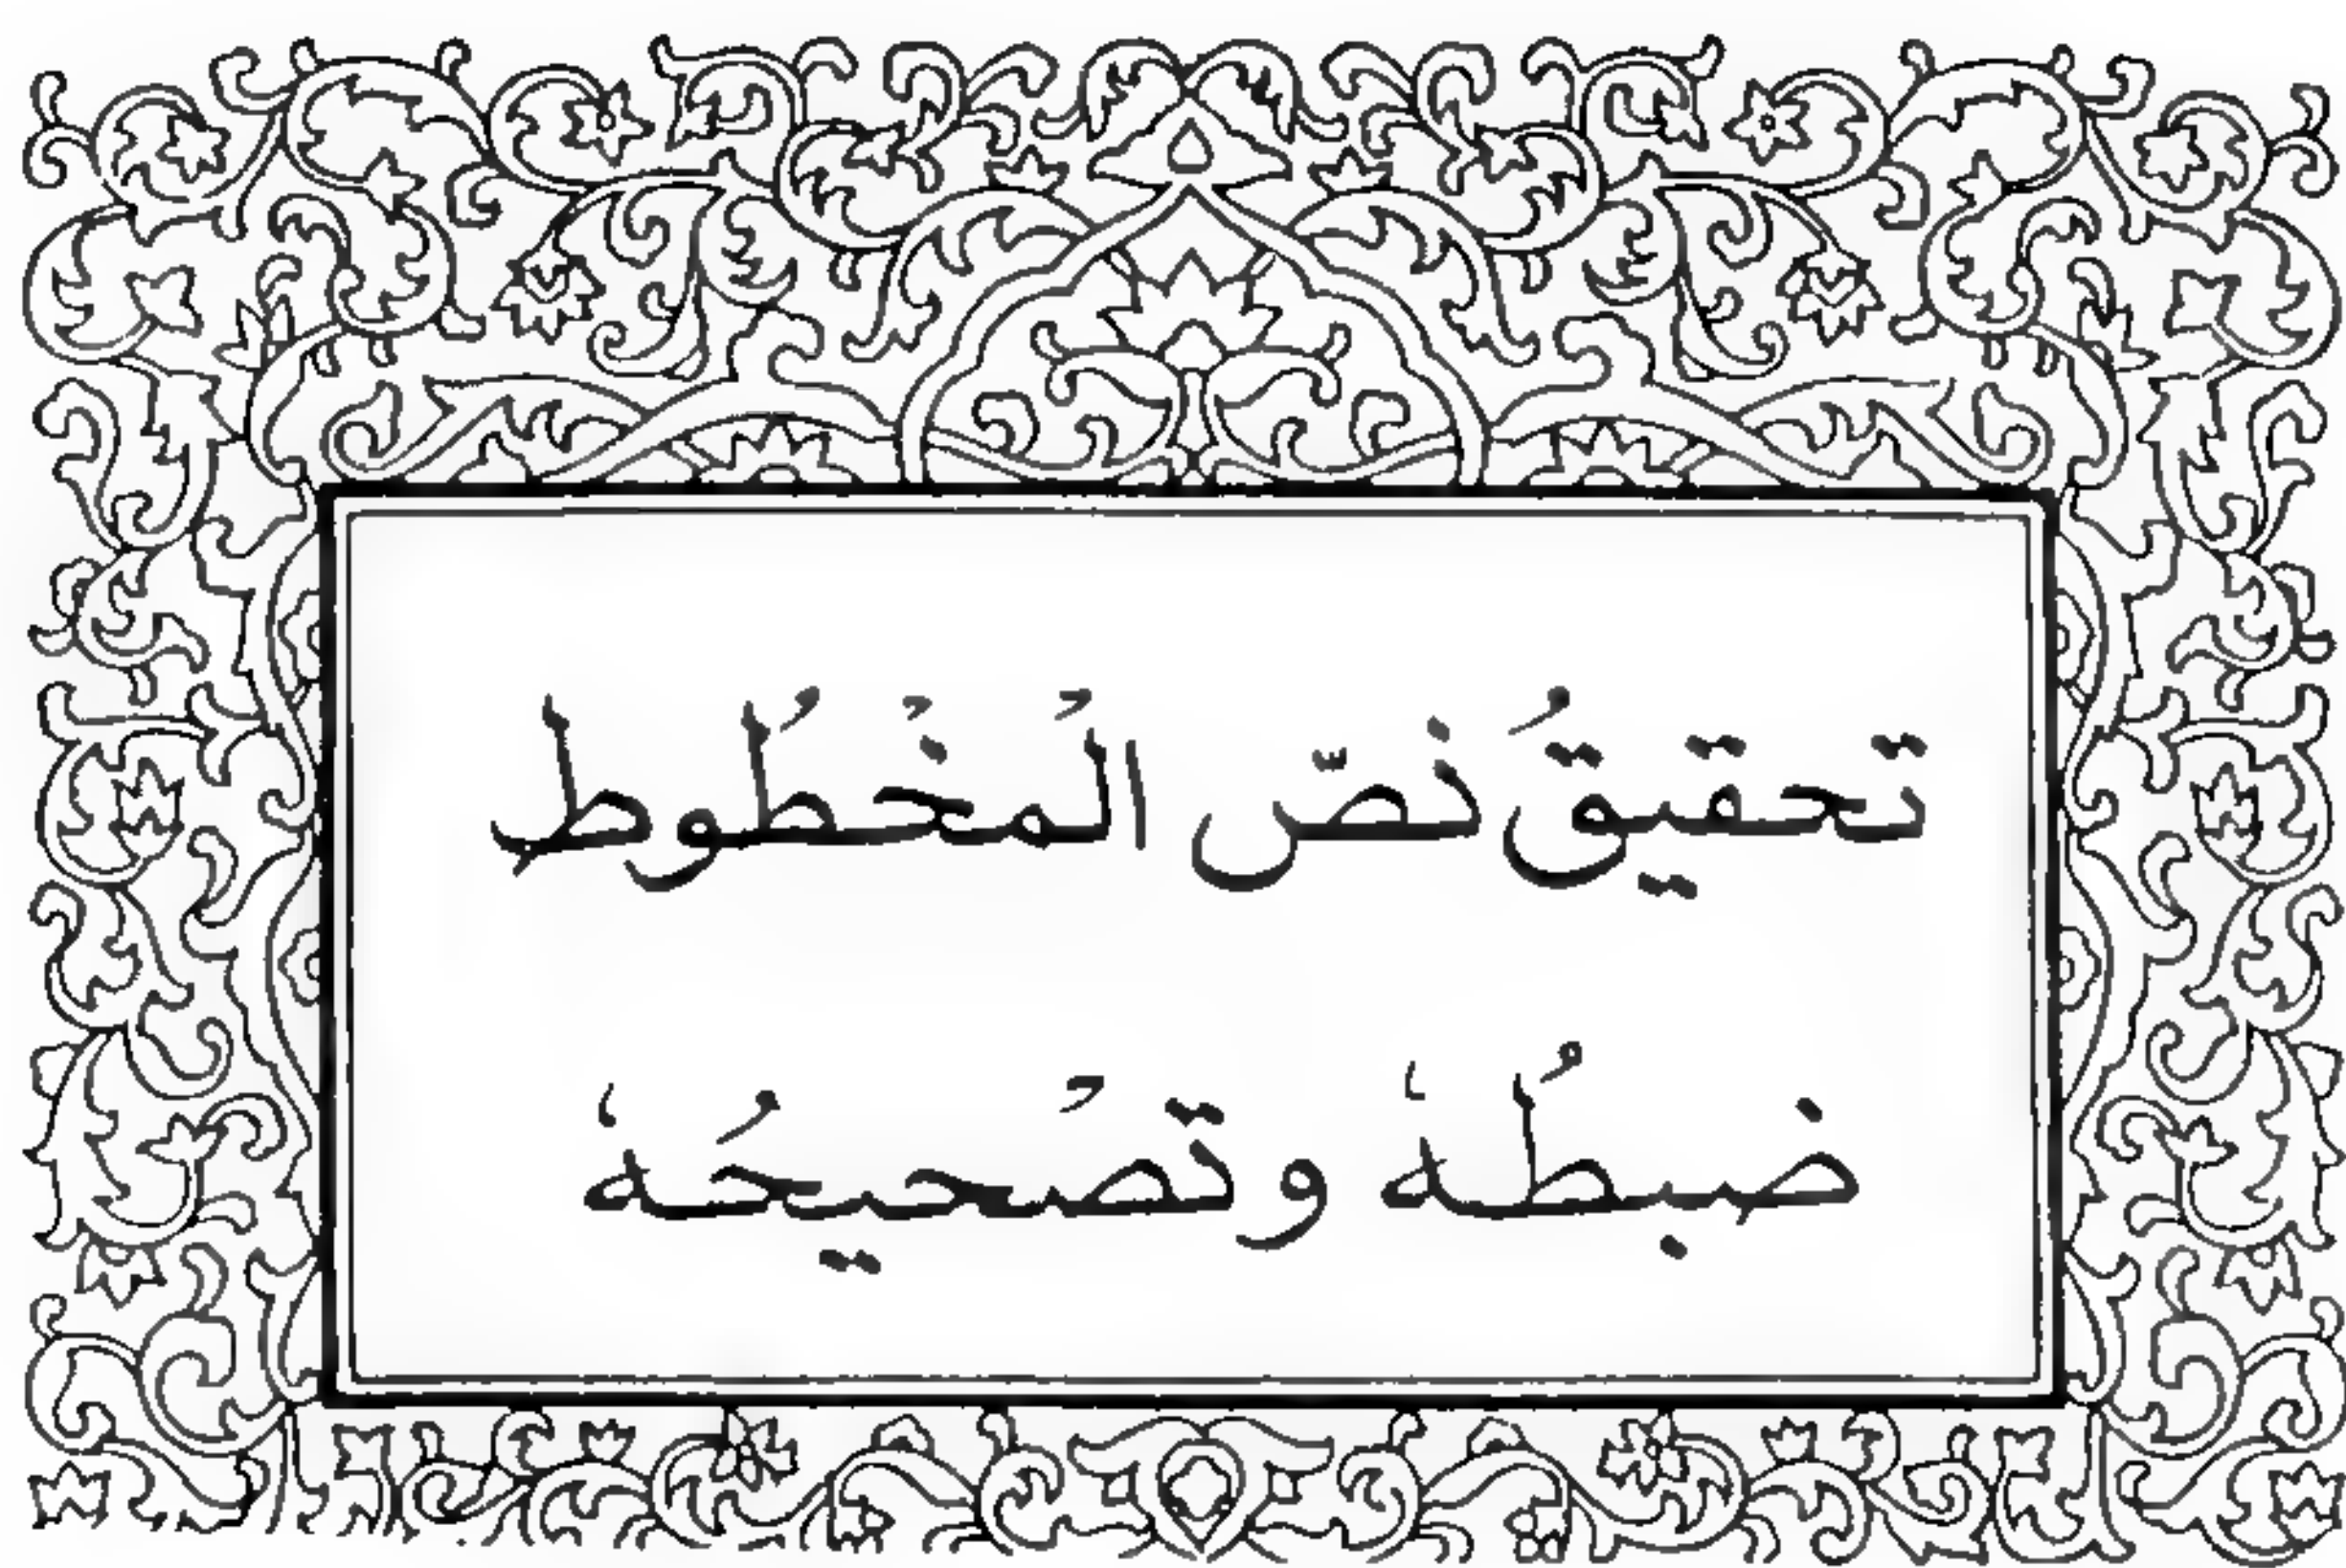 تحقيقُ نصّ الْمخْطُوطِ
ضبطُهُ وتصْحيحُهُ